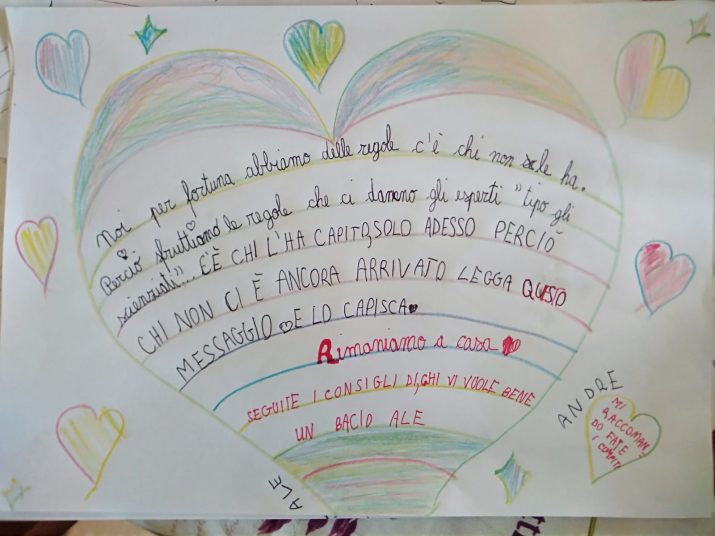 Noi per fortuna abbiamo delle regole c'è chi non le ha.
Perciò sfruttiamo le regole che ci danno gli esperti "tipo gli
scienziati"... C'È CHI L'HA CAPITO SOLO ADESSO PERCIÒ
CHI NON CI È ANCORA ARRIVATO LEGGA QUESTO
MESSAGGIO E LO CAPISCA
Rimaniamo a casa
SEGUITE I CONSIGLI DI CHI VI VUOLE BENE
UN BACIO ALE
ALE
ANDRE
MI
RACCOMAN
DO FATE
I COMPITI